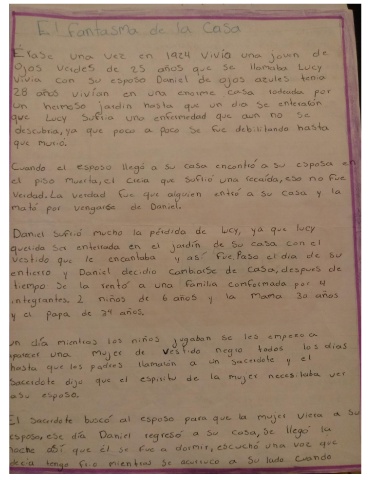 El fantasma de la Casa
Érase una vez en 1924 Vivía una joven de
Ojos Verdes de 25 años que se llamaba Lucy
Vivía con su esposo Daniel de ojos azules tenía
28 años vivían en una enorme casa rodeada por
Un hermoso jardín hasta que un día Se enteraron
que Lucy Sufría una enfermedad que aun no Se
descubría, ya que poco a poco Se fue debilitando hasta
que murió.
Cuando el esposo llegó a Su casa encontró a Su esposa en
el piso Muerta, el creia que Sufrió una recaída, eso no fue
Verdad. La verdad fue que alguien entró a Su casa y la
mató por vengarse de Daniel.
Daniel Sufrió mucho la pérdida de Lucy, ya que lucy
quería Ser enterrada en el jardín de Su casa con el
Vestido que le encantaba y así fue, Paso el día de Su
entierro y Daniel decidio Cambiarse de Casa, después de
tiempo Se la rentó a una familia conformada por 4
integrantes 2 niños de 6 años y la Mama 30 años
y el papa de 34 años.
un día mientras los niños jugaban Se les empezo a
aparecer una Mujer de Vestido Negro todos los días
hasta que los padres llamaron a un Sacerdote y el
Sacerdote dijo que el espiritu de la mujer necesitaba ver
a su esposo.
El Sacerdote buscó al esposo para que la mujer Viera a Su
esposo, ese día Daniel regresó a Su casa, Se llegó la
noche así que él Se fue a dormir, escuchó una voz que
decía tengo frio mientras Se acurruco a Su lado Cuando